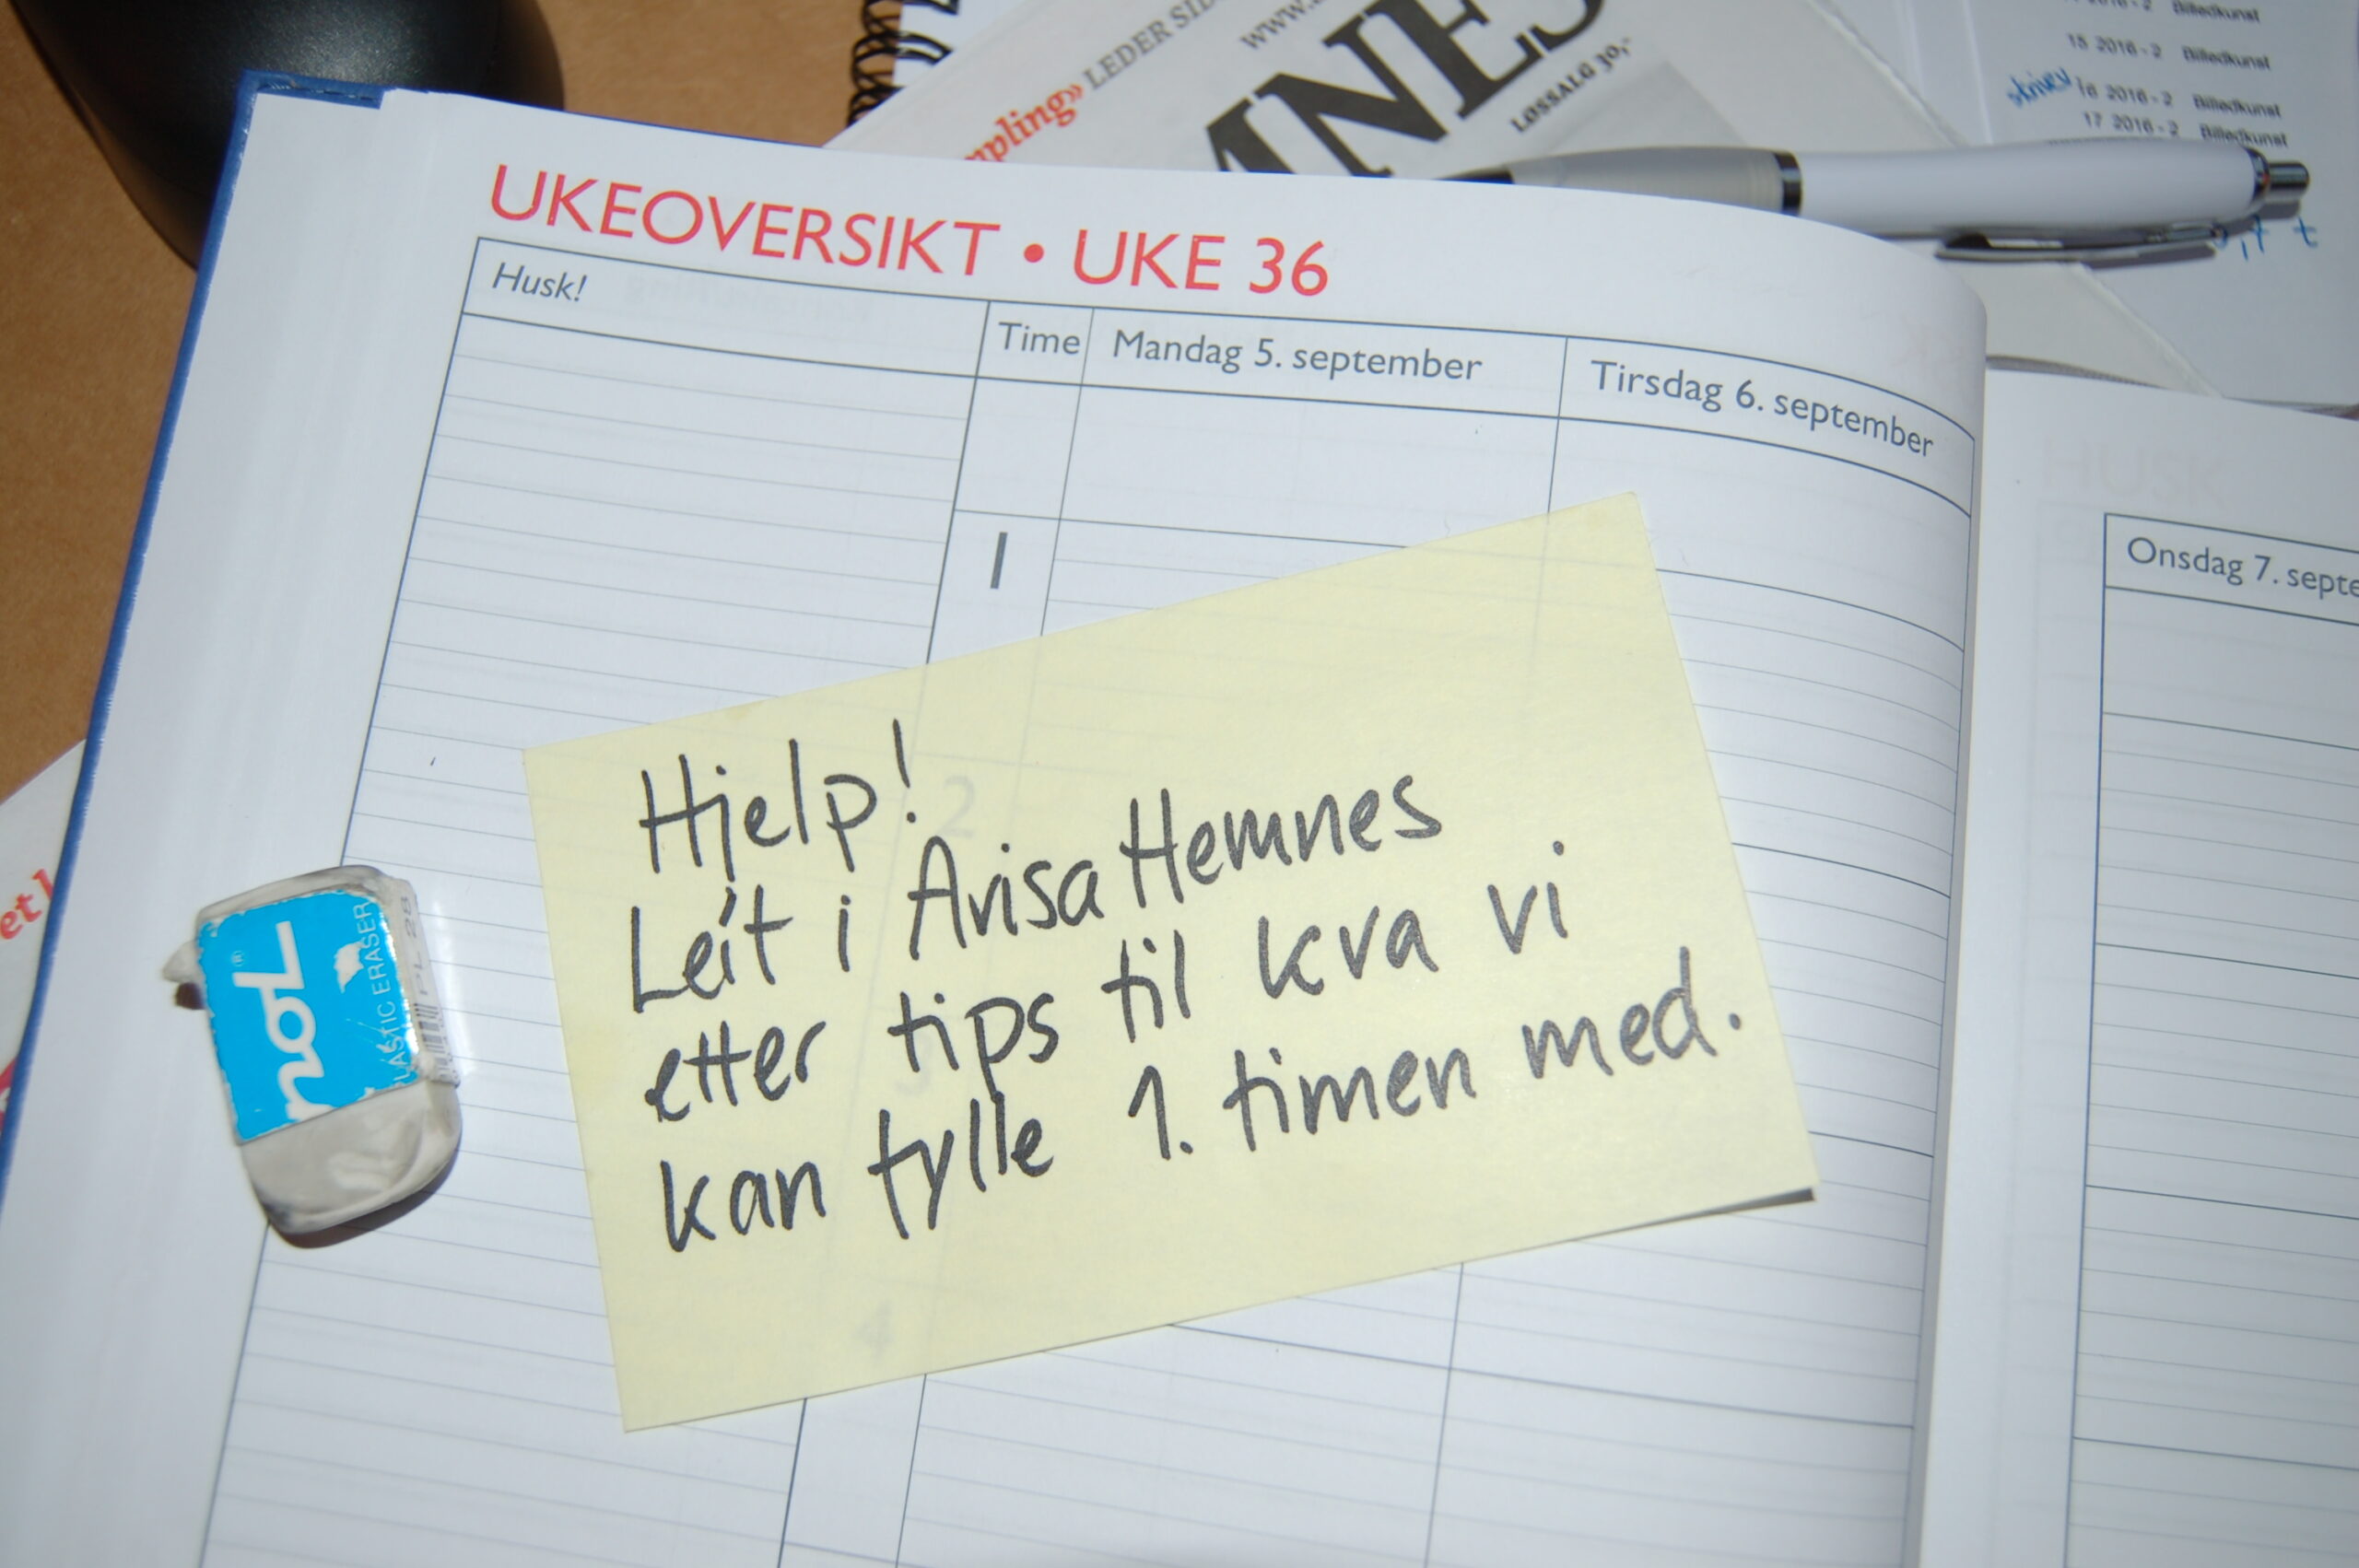 mpling» LEDER SID
www.
MNES
LØSSALG 30,-
2016 - 2 Billedkunst
15 2016 - 2 Billedkunst
16 2016 - 2 Billedkunst
17 2016 - 2 Billedkunst
UKEOVERSIKT • UKE 36
Husk!
Time
Mandag 5. september
Tirsdag 6. september
HUSK
Onsdag 7. septe
1
2
3
4
Hjelp!
Leit i Avisa Hemnes
etter tips til kva vi
kan fylle 1. timen med.
et
noL®
PLASTIC ERASER